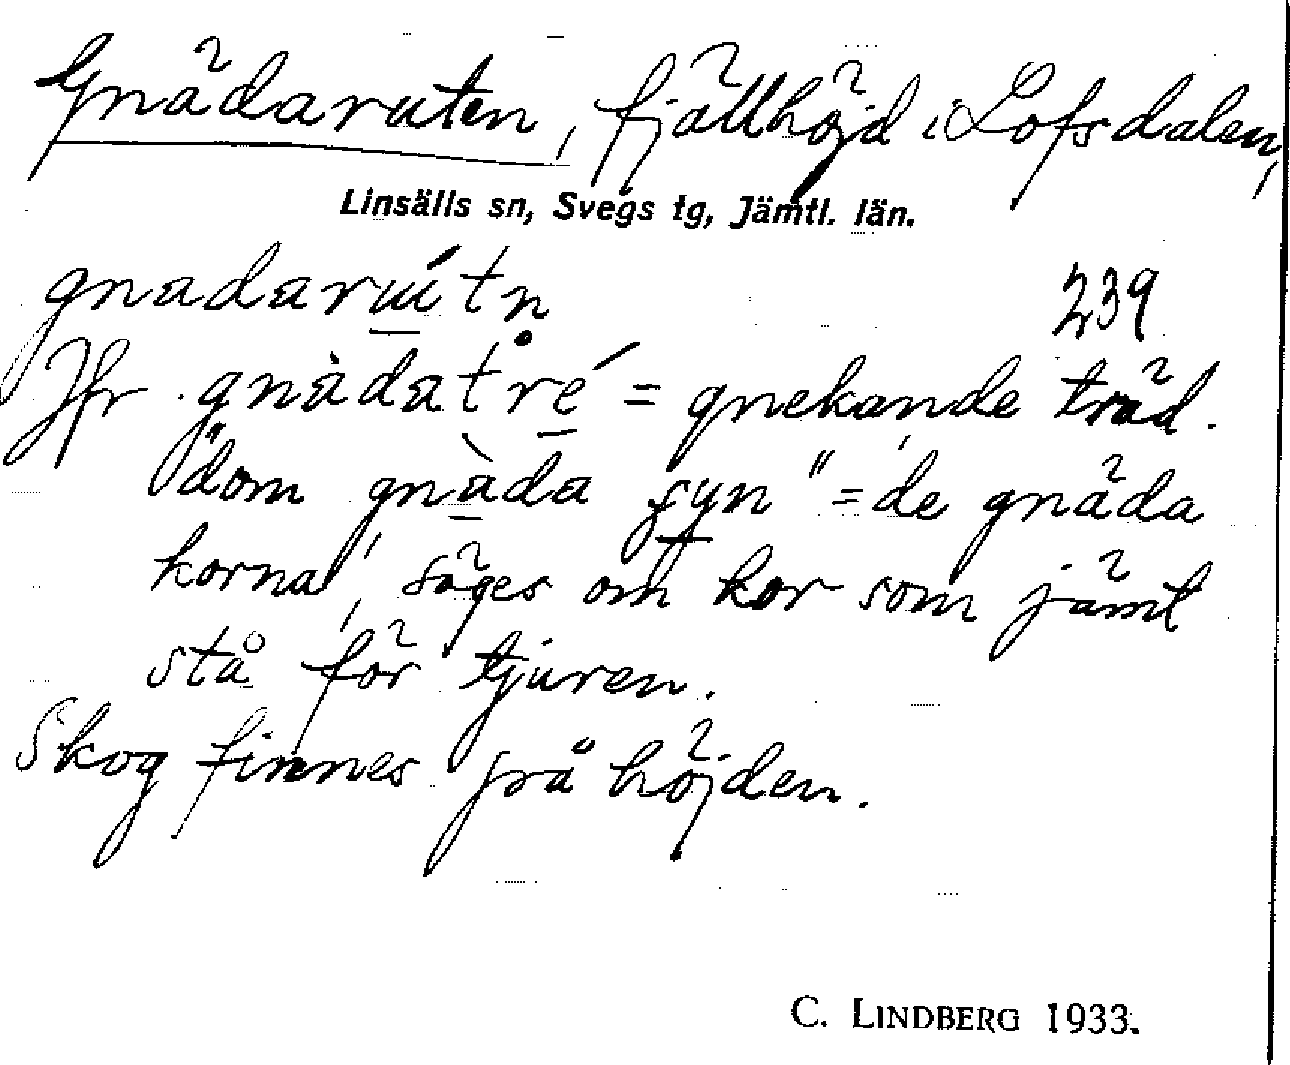 Gnädaruten, fjällhöjd i Lofsdalen,
Linsälls sn, Svegs tg, Jämtl. län.
gnadarut́n
239
Jfr gnàdatre̊́ = gnekande träd.
"dom gnàda ſyn" = de gnäda
korna, säges om kor som jämt
stå för tjuren.
Skog finnes på höjden.
C. LINDBERG 1933.